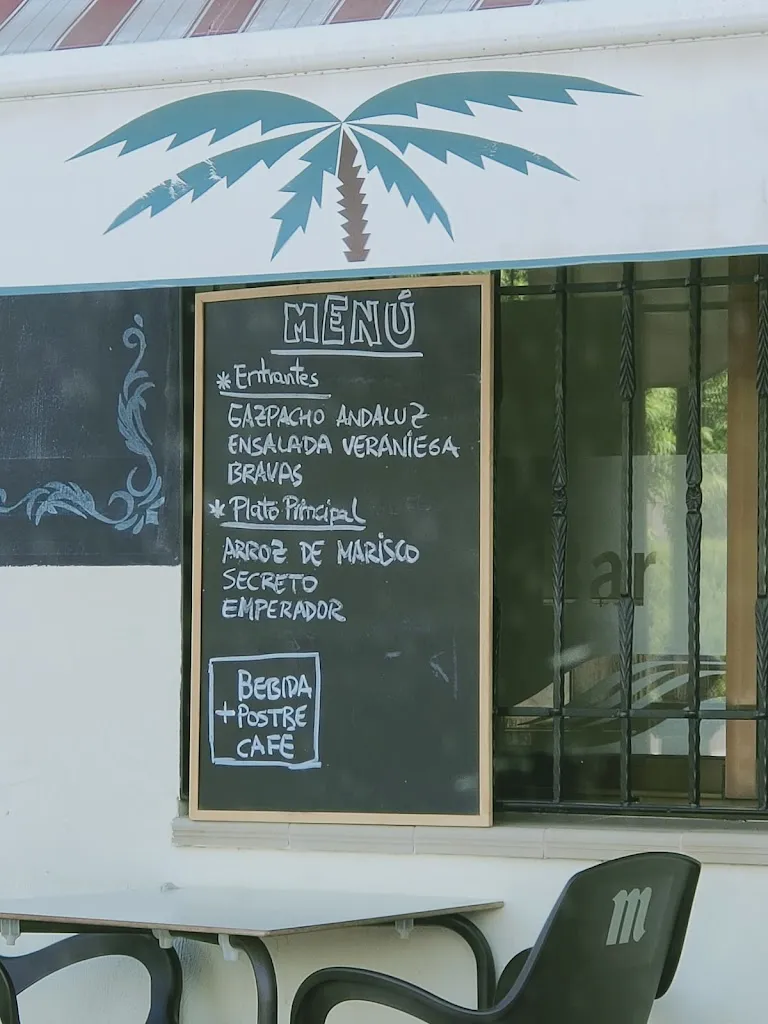 MENÚ
* Entrantes
GAZPACHO ANDALUZ
ENSALADA VERANIEGA
BRAVAS
* Plato Principal
ARROZ DE MARISCO
SECRETO
EMPERADOR
BEBIDA
+POSTRE
CAFÉ
Bar
m